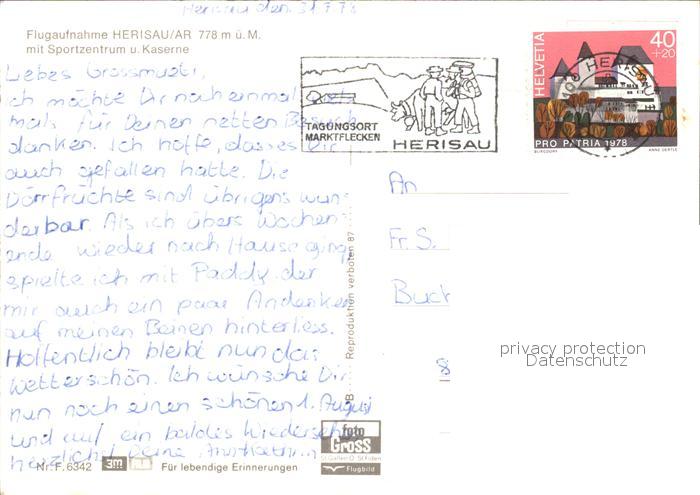 Herisau den 31.7.78
Flugaufnahme HERISAU/AR 778 m ü. M.
mit Sportzentrum u. Kaserne
Liebes Grossmueti,
ich möchte Dir noch einmal
mals für Deinen netten Besuch
danken. Ich hoffe, dass es Dir
auch gefallen hatte. Die
Dörrfrüchte sind übrigens wun-
derbar. Als ich übers Wochen-
ende wieder nach Hause ging
spielte ich mit Paddy, der
mir auch ein paar Andenken
auf meinen Beinen hinterliess.
Hoffentlich bleibt nun das
Wetter schön. Ich wünsche Dir
nun noch einen schönen 1. August
und auf ein baldes Wiedersehn
herzlichst Deine
Nr. F. 6342 3M Für lebendige Erinnerungen
B Reproduktion verboten 87
TAGUNGSORT
MARKTFLECKEN
HERISAU
HELVETIA
40
+20
HERISAU
PRO PATRIA 1978
BURGDORF ANNE OERTLE
An
Fr. S.
Buch
8
privacy protection
Datenschutz
foto
Gross
St. Gallen O St. Fiden
Flugbild